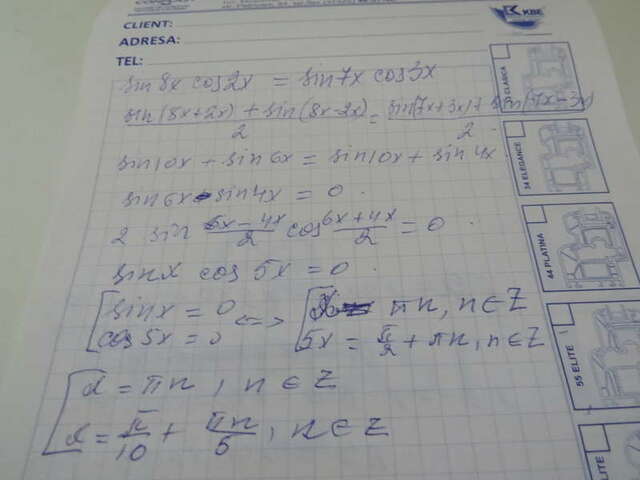 CLIENT:
KBE
ADRESA:
TEL:
sin 8x cos 2x = sin 7x cos 3x
(sin(8x+2x) + sin(8x-2x))/2 = (sin(7x+3x) + sin(7x-3x))/2
sin 10x + sin 6x = sin 10x + sin 4x
sin 6x - sin 4x = 0.
2 sin (6x-4x)/2 cos (6x+4x)/2 = 0.
sin x cos 5x = 0.
[sin x = 0 <=> [x = πn, n∈Z
[cos 5x = 0 [5x = π/2 + πn, n∈Z
[x = πn, n∈Z
[x = π/10 + πn/5, n∈Z
CLASICA
74 ELEGANCE
44 PLATINA
55 ELITE
ELITE